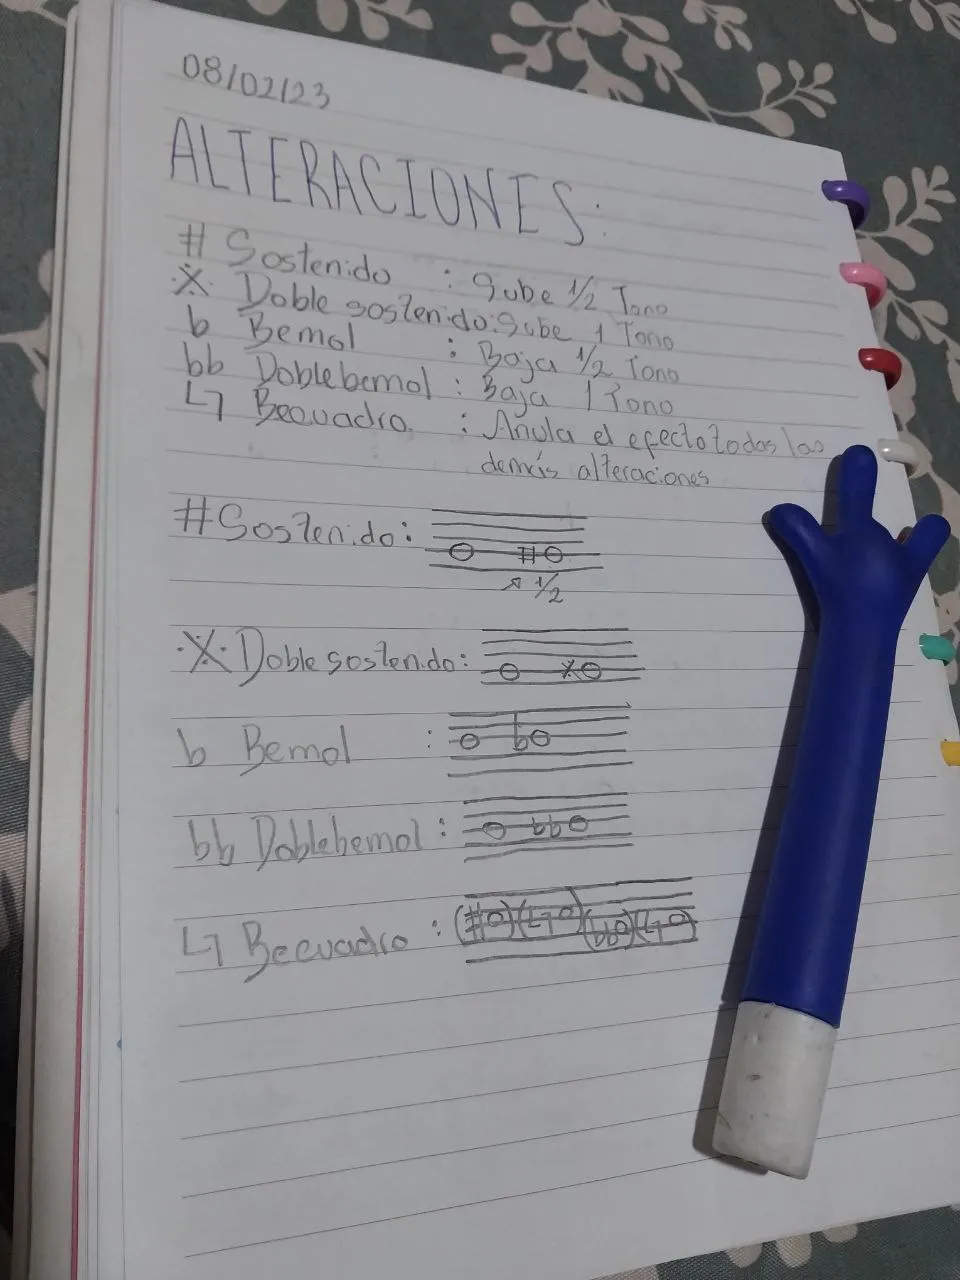 08/02/23
ALTERACIONES:
# Sostenido : Sube 1/2 Tono
·X· Doble sostenido: Sube 1 Tono
b Bemol : Baja 1/2 Tono
bb Doblebemol : Baja 1 Tono
♮ Becuadro : Anula el efecto todas las
demás alteraciones
# Sostenido: # 1/2
·X· Doble sostenido: x
b Bemol : b
bb Doblebemol : bb
♮ Becuadro : (#)(♮)(bb)(♮)